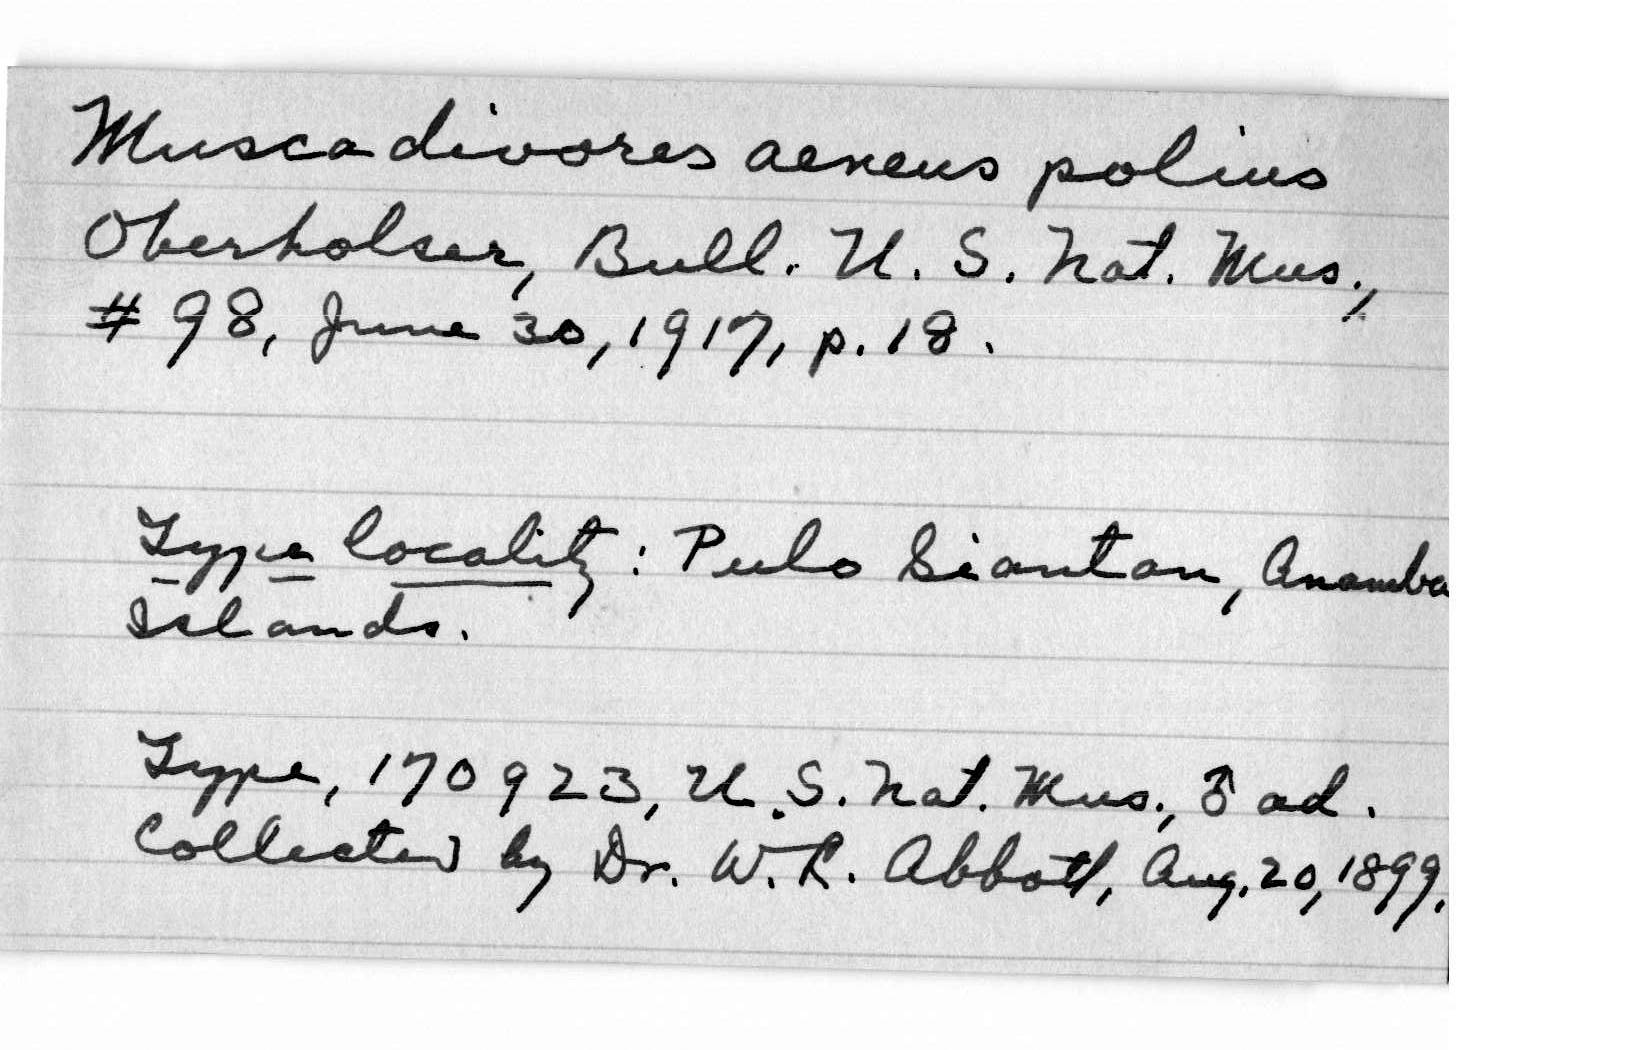 Muscadivores aeneus polius
Oberholser, Bull. U. S. Nat. Mus.,
# 98, June 30, 1917, p. 18.
Type locality: Pulo Siantan, Anamba
Islands.
Type, 170923, U. S. Nat. Mus., ♂ ad.
Collected by Dr. W. L. Abbott, Aug. 20, 1899.